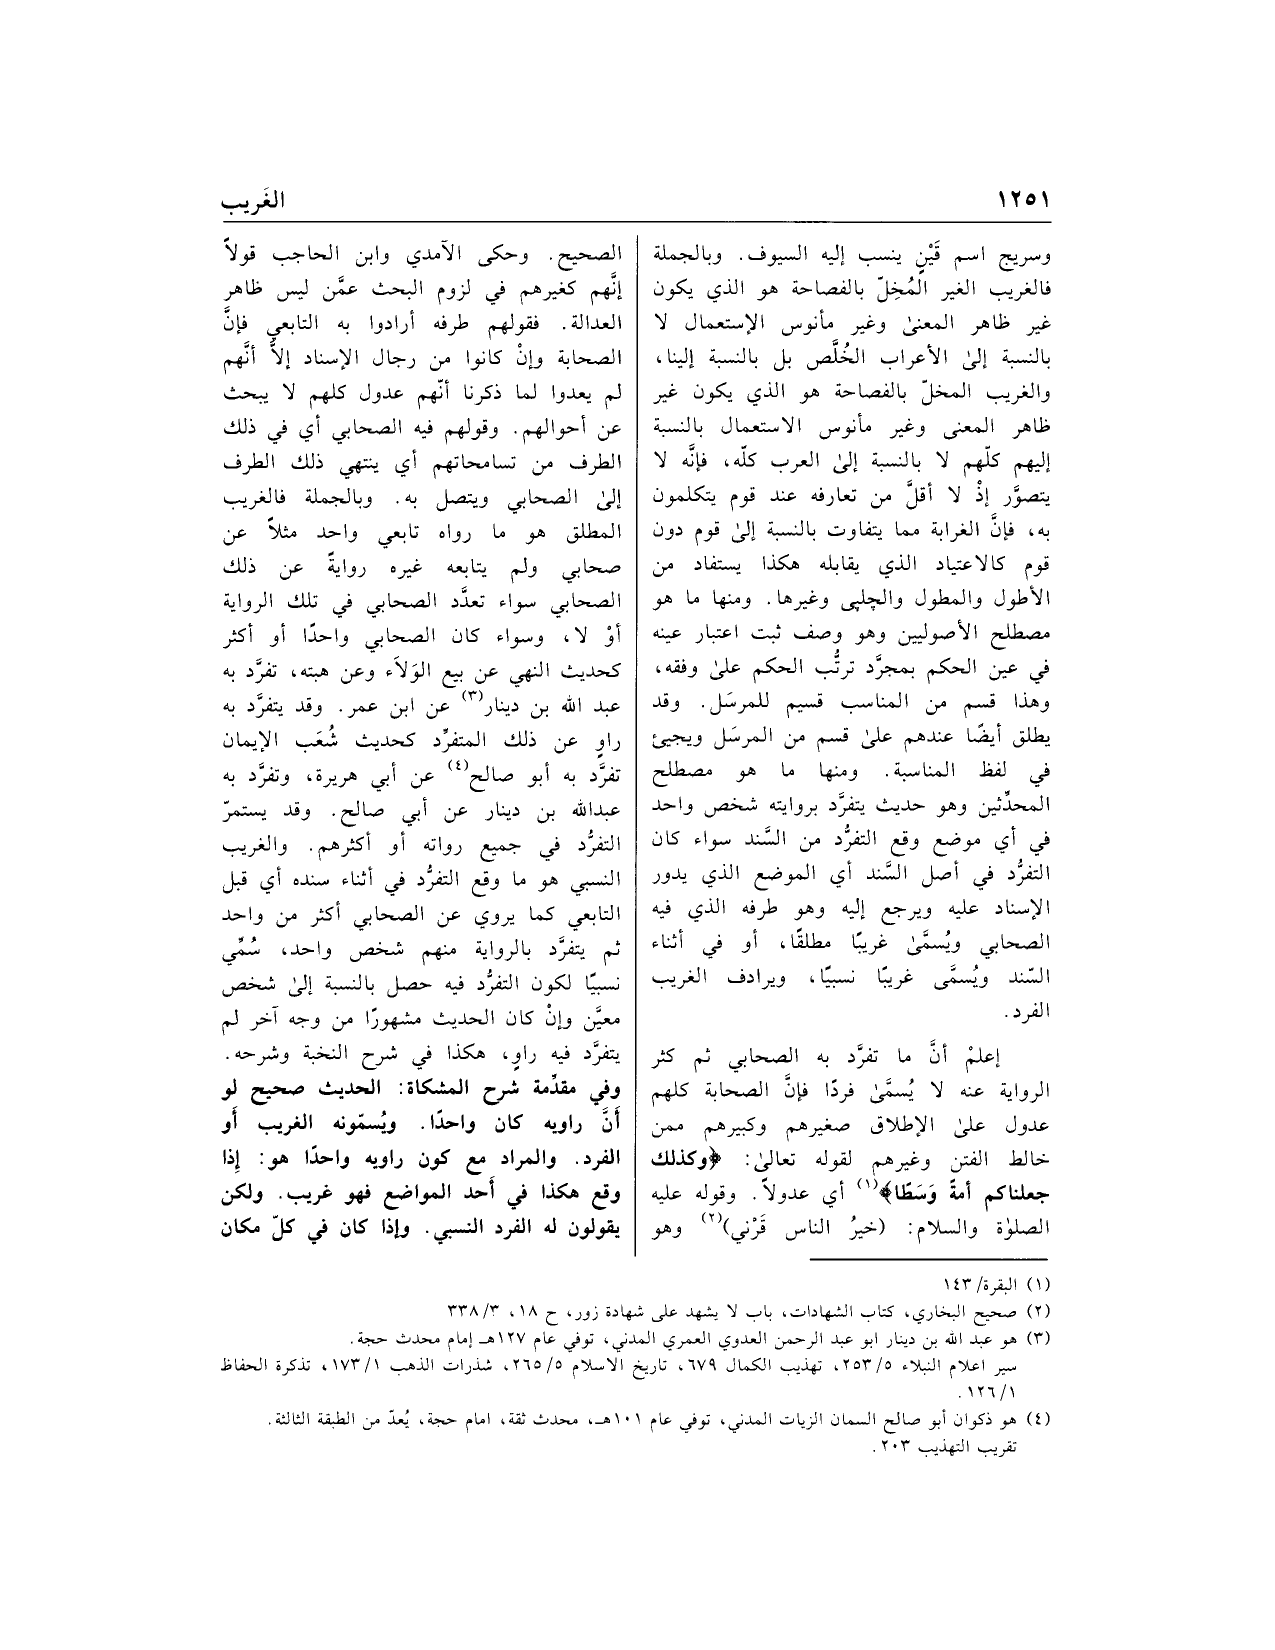 ١٢٥١
الغَريب
وسريج اسم قَيْنٍ ينسب إليه السيوف. وبالجملة
فالغريب الغير المُخِلّ بالفصاحة هو الذي يكون
غير ظاهر المعنىٰ وغير مأنوس الإستعمال لا
بالنسبة إلىٰ الأعراب الخُلَّص بل بالنسبة إلينا،
والغريب المخلّ بالفصاحة هو الذي يكون غير
ظاهر المعنى وغير مأنوس الاستعمال بالنسبة
إليهم كلّهم لا بالنسبة إلىٰ العرب كلّه، فإنَّه لا
يتصوَّر إذْ لا أقلَّ من تعارفه عند قوم يتكلمون
به، فإنَّ الغرابة مما يتفاوت بالنسبة إلىٰ قوم دون
قوم كالاعتياد الذي يقابله هكذا يستفاد من
الأطول والمطول والچلپى وغيرها. ومنها ما هو
مصطلح الأصوليين وهو وصف ثبت اعتبار عينه
في عين الحكم بمجرَّد ترتُّب الحكم علىٰ وفقه،
وهذا قسم من المناسب قسيم للمرسَل. وقد
يطلق أيضًا عندهم علىٰ قسم من المرسَل ويجيئ
في لفظ المناسبة. ومنها ما هو مصطلح
المحدِّثين وهو حديث يتفرَّد بروايته شخص واحد
في أي موضع وقع التفرُّد من السَّند سواء كان
التفرُّد في أصل السَّند أي الموضع الذي يدور
الإسناد عليه ويرجع إليه وهو طرفه الذي فيه
الصحابي ويُسمَّىٰ غريبًا مطلقًا، أو في أثناء
السّند ويُسمَّى غريبًا نسبيًا، ويرادف الغريب
الفرد.
إعلمْ أنَّ ما تفرَّد به الصحابي ثم كثر
الرواية عنه لا يُسمَّىٰ فردًا فإنَّ الصحابة كلهم
عدول علىٰ الإطلاق صغيرهم وكبيرهم ممن
خالط الفتن وغيرهم لقوله تعالىٰ: ﴿وكذلك
جعلناكم أمةً وَسَطًا﴾(١) أي عدولاً. وقوله عليه
الصلوٰة والسلام: (خيرُ الناس قَرْني)(٢) وهو
الصحيح. وحكى الآمدي وابن الحاجب قولاً
إنَّهم كغيرهم في لزوم البحث عمَّن ليس ظاهر
العدالة. فقولهم طرفه أرادوا به التابعي فإنَّ
الصحابة وإنْ كانوا من رجال الإسناد إلاَّ أنَّهم
لم يعدوا لما ذكرنا أنّهم عدول كلهم لا يبحث
عن أحوالهم. وقولهم فيه الصحابي أي في ذلك
الطرف من تسامحاتهم أي ينتهي ذلك الطرف
إلىٰ الصحابي ويتصل به. وبالجملة فالغريب
المطلق هو ما رواه تابعي واحد مثلاً عن
صحابي ولم يتابعه غيره روايةً عن ذلك
الصحابي سواء تعدَّد الصحابي في تلك الرواية
أوْ لا، وسواء كان الصحابي واحدًا أو أكثر
كحديث النهي عن بيع الوَلاَء وعن هبته، تفرَّد به
عبد الله بن دينار(٣) عن ابن عمر. وقد يتفرَّد به
راوٍ عن ذلك المتفرِّد كحديث شُعَب الإيمان
تفرَّد به أبو صالح(٤) عن أبي هريرة، وتفرَّد به
عبدالله بن دينار عن أبي صالح. وقد يستمرّ
التفرُّد في جميع رواته أو أكثرهم. والغريب
النسبي هو ما وقع التفرُّد في أثناء سنده أي قبل
التابعي كما يروي عن الصحابي أكثر من واحد
ثم يتفرَّد بالرواية منهم شخص واحد، سُمِّي
نسبيًا لكون التفرُّد فيه حصل بالنسبة إلىٰ شخص
معيَّن وإنْ كان الحديث مشهورًا من وجه آخر لم
يتفرَّد فيه راوٍ، هكذا في شرح النخبة وشرحه.
وفي مقدِّمة شرح المشكاة: الحديث صحيح لو
أَنَّ راويه كان واحدًا. ويُسمّونه الغريب أو
الفرد. والمراد مع كون راويه واحدًا هو: إِذا
وقع هكذا في أَحد المواضع فهو غريب. ولكن
يقولون له الفرد النسبي. وإذا كان في كلّ مكان
(١) البقرة/ ١٤٣
(٢) صحيح البخاري، كتاب الشهادات، باب لا يشهد على شهادة زور، ح ١٨، ٣/ ٣٣٨
(٣) هو عبد الله بن دينار ابو عبد الرحمن العدوي العمري المدني، توفي عام ١٢٧هـ إمام محدث حجة.
سير اعلام النبلاء ٥/ ٢٥٣، تهذيب الكمال ٦٧٩، تاريخ الاسلام ٥/ ٢٦٥، شذرات الذهب ١/ ١٧٣، تذكرة الحفاظ
١/ ١٢٦.
(٤) هو ذكوان أبو صالح السمان الزيات المدني، توفي عام ١٠١هـ، محدث ثقة، امام حجة، يُعدّ من الطبقة الثالثة.
تقريب التهذيب ٢٠٣.